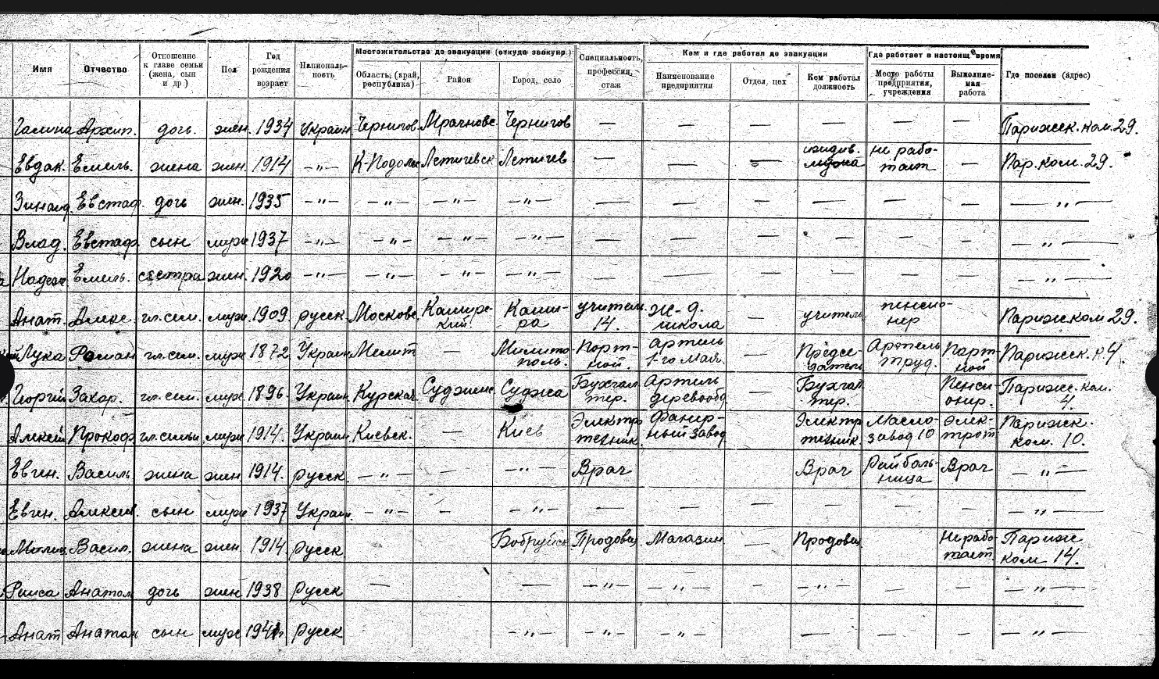 Имя Отчество Отношение к главе семьи (жена, сын и др) Пол Год рождения возраст Националь-ность Местожительства до эвакуации (откуда эвакуир.) Область, (край, республика) Район Город, село Специальность, профессия, стаж Кем и где работал до эвакуации Наименование предприятия Отдел, цех Кем работал должность Где работает в настоящ. время Место работы предприятия, учреждения Выполняе-мая работа Где поселен (адрес)
Галина Архип. дочь жен. 1934 Украин Чернигов Чернигов — — — — — — Парижск. ком. 29.
Евдак. Емель. жена жен. 1914 -"- К-Подольс Летичевск Летичев — — — не рабо-тает — Пар. ком. 29.
Зинаид. Евстаф. дочь жен. 1935 -"- -"- -"- -"- — — — — — — -"-
Влад. Евстаф сын муж 1937 -"- -"- -"- -"- — — — — — — -"-
Емель. сестра жен. 1920 -"- -"- -"- -"- — — — — — — -"-
Анат. Алекс. гл. сем. муж. 1909 русск Московс. Кашир-кий. Каши-ра учитель 14. ж-д. школа — учитель пенсио-нер Парижск ком 29.
Лука Роман гл. сем. муж 1872 Украин Мелит — Милито-поль. Порт-ной. Артель 1-го мая. — Предсе-датель Артель труд. Порт-ной Парижск. к. 4.
Георгий Захар. гл. сем. муж. 1896 Украин. Курская Суджанс Суджа Бухгал-тер. Артель деревообд — Бухгал-тер. Пенси-онер. Парижс. ком. 4.
Алексей Прокоф гл. семьи муж 1914. Украин. Киевск. — Киев Электр техник. Фанер-ный завод — Электр техник Масло-завод 10 Элек-трот Парижск. ком. 10.
Евген. Василь жена жен. 1914. русск -"- — -"- Врач — Врач Райболь-ница Врач -"-
Евген. Алексеев сын муж 1937 Украин. -"- — -"- — — — — — — -"-
Васил. жена жен. 1914 Русск Бобруйск Продовец Магазин. — Продовец Не рабо-тает Париж ком 14.
Раиса Анатол дочь жен 1938 Русск — -"- — — — — -"-
Анат Анатол сын муж 1941 Русск -"- -"- -"- — — — — -"-